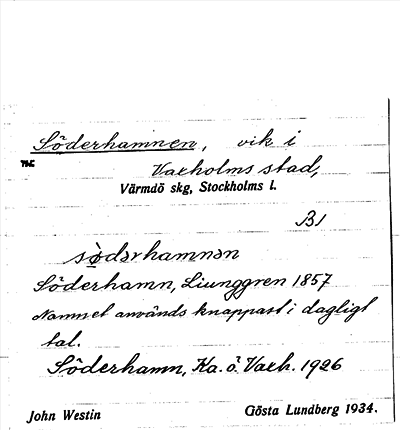 Söderhamnen, vik i
Vaxholms stad,
Värmdö skg, Stockholms l.
B1
södərhamnən
Söderhamn, Ljunggren 1857
Namnet används knappast i dagligt
tal.
Söderhamn, Ka. ö. Vaxh. 1926
John Westin
Gösta Lundberg 1934.